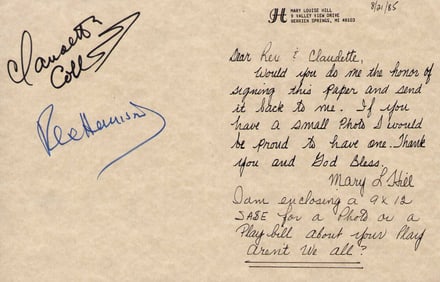 Claudette
Colb
Rex Harrison
H
MARY LOUISE HILL
9 VALLEY VIEW DRIVE
BERRIEN SPRINGS, MI 49103
8/21/85
Dear Rex & Claudette,
Would you do me the honor of
signing this paper and send
it back to me. If you
have a small Photo I would
be proud to have one. Thank
you and God Bless.
Mary L Hill
I am enclosing a 9x12
SASE for a Photo or a
Playbill about your Play
Arent We all?